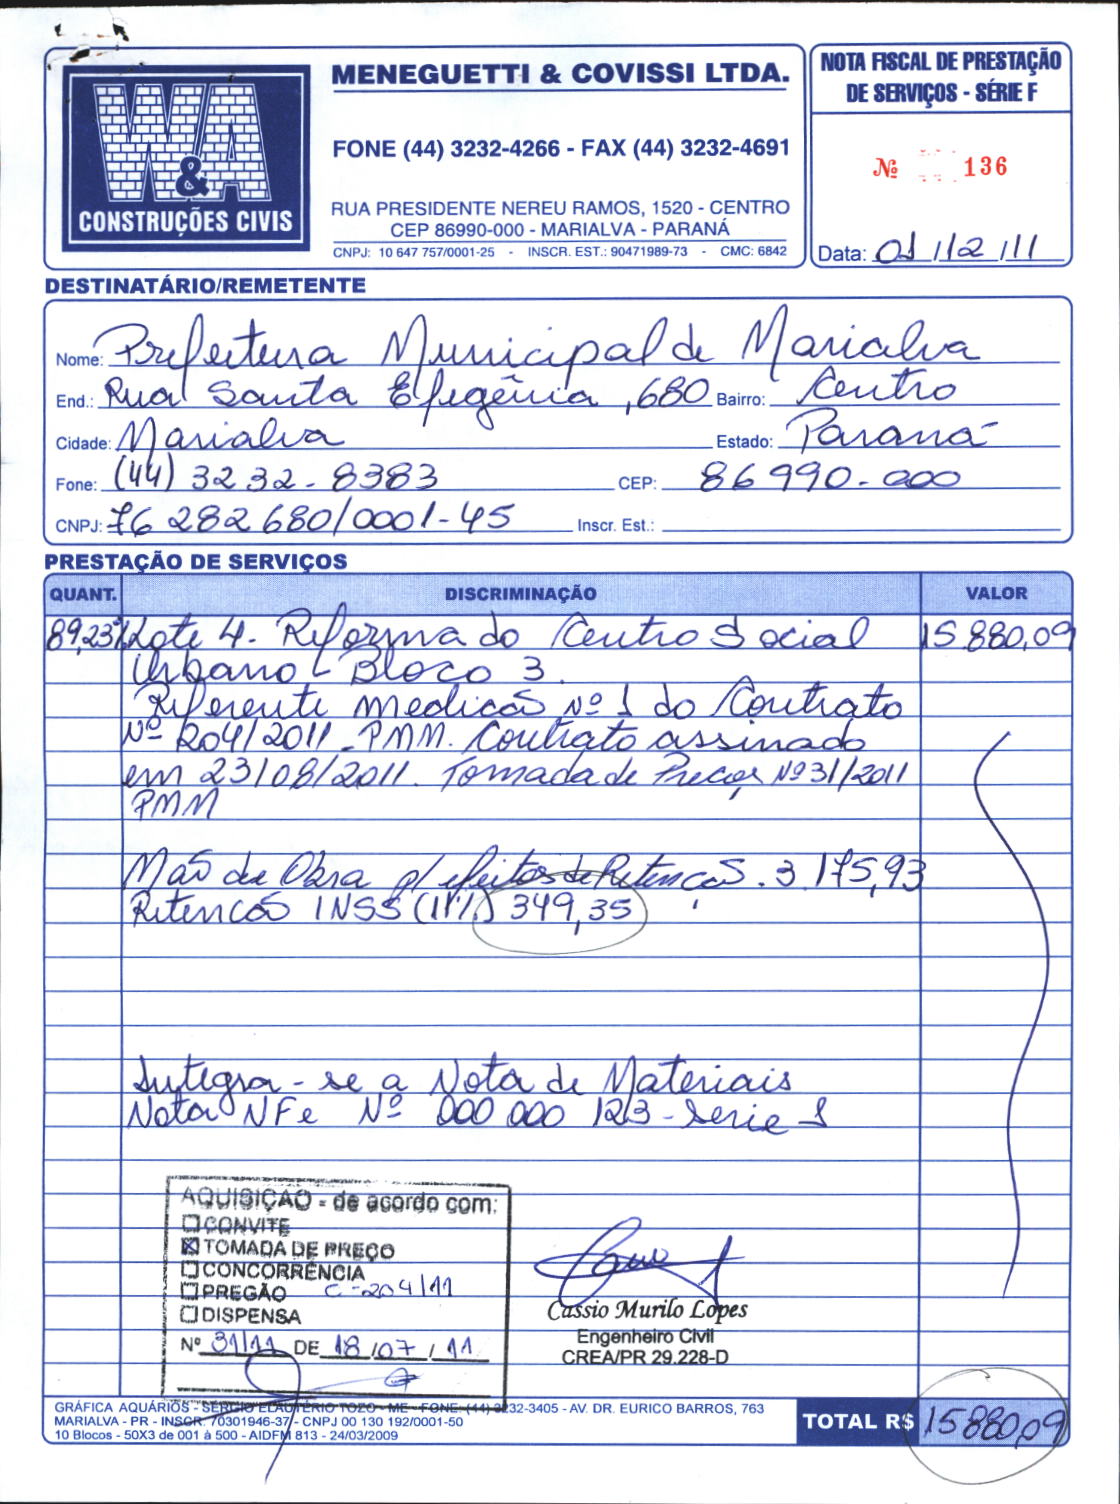 W&A
CONSTRUÇÕES CIVIS
MENEGUETTI & COVISSI LTDA.
FONE (44) 3232-4266 - FAX (44) 3232-4691
RUA PRESIDENTE NEREU RAMOS, 1520 - CENTRO
CEP 86990-000 - MARIALVA - PARANÁ
CNPJ: 10 647 757/0001-25 - INSCR. EST.: 90471989-73 - CMC: 6842
NOTA FISCAL DE PRESTAÇÃO
DE SERVIÇOS - SÉRIE F
Nº 136
Data: 01/12/11
DESTINATÁRIO/REMETENTE
Nome: Prefeitura Municipal de Marialva
End.: Rua Santa Efigênia, 680 Bairro: Centro
Cidade: Marialva Estado: Paraná
Fone: (44) 3232-8383 CEP: 86990-000
CNPJ: 76 282 680/0001-45 Inscr. Est.:
PRESTAÇÃO DE SERVIÇOS
QUANT. DISCRIMINAÇÃO VALOR
89,23% Lote 4. Reforma do Centro Social 15.880,09
Urbano - Bloco 3.
Referente medicão Nº 1 do Contrato
Nº 204/2011-PMM. Contrato assinado
em 23/08/2011. Tomada de Preços Nº 31/2011
PMM
Mão de Obra p/ efeitos de Retenção. 3.175,93
Retencão INSS (11%) 349,35
Integra-se a Nota de Materiais
Nota NFe Nº 000 000 123 - Serie 1
AQUISIÇÃO - de acordo com:
☐ CONVITE
☒ TOMADA DE PREÇO
☐ CONCORRÊNCIA
☐ PREGÃO C-204/11
☐ DISPENSA
Nº 31/11 DE 18/07/11
Cássio Murilo Lopes
Engenheiro Civil
CREA/PR 29.228-D
GRÁFICA AQUÁRIOS - SERGIO ELAUTÉRIO TOZO - ME - FONE: (44) 3232-3405 - AV. DR. EURICO BARROS, 763
MARIALVA - PR - INSCR. 70301946-37 - CNPJ 00 130 192/0001-50
10 Blocos - 50X3 de 001 à 500 - AIDFM 813 - 24/03/2009
TOTAL R$ 15.880,09